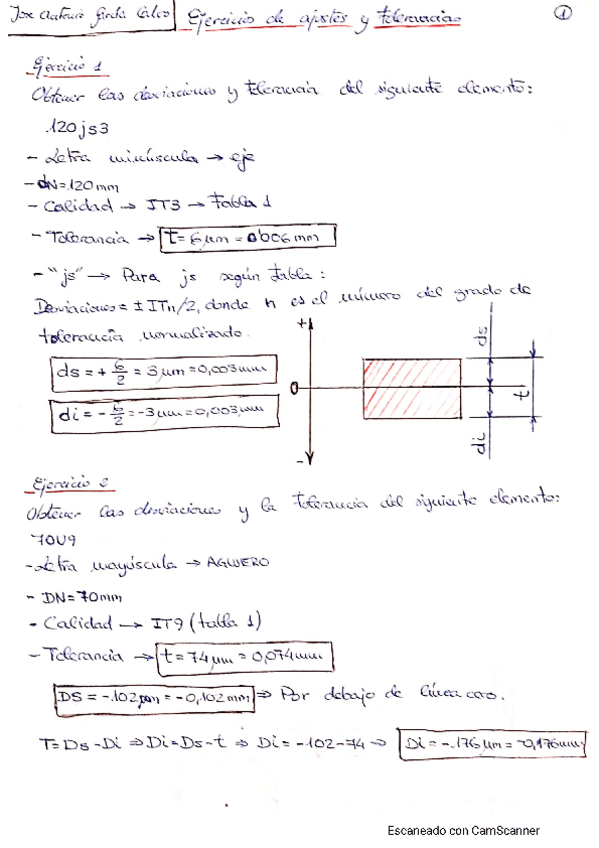 Jose Arturo García Calvo Ejercicios de ajustes y tolerancias 1
Ejercicio 1
Obtener las desviaciones y tolerancia del siguiente elemento:
120js3
- Letra minúscula → eje
- dN=120mm
- Calidad → IT3 → Tabla 1
- Tolerancia → t = 6μm = 0'006mm
- "js" → Para js según tabla:
Desviaciones = ± ITn/2, donde n es el número del grado de
tolerancia normalizado.
ds = + 6/2 = 3μm = 0,003mm
di = - 6/2 = -3μm = 0,003mm
+
0
-
ds
di
t
Ejercicio 2
Obtener las desviaciones y la tolerancia del siguiente elemento:
70U9
- Letra mayúscula → AGUJERO
- DN=70mm
- Calidad → IT9 (tabla 1)
- Tolerancia → t = 74μm = 0,074mm
DS = -102μm = -0,102mm ⇒ Por debajo de línea cero.
T = Ds - Di ⇒ Di = Ds - t ⇒ Di = -102 - 74 → Di = -176μm = -0,176mm
Escaneado con CamScanner